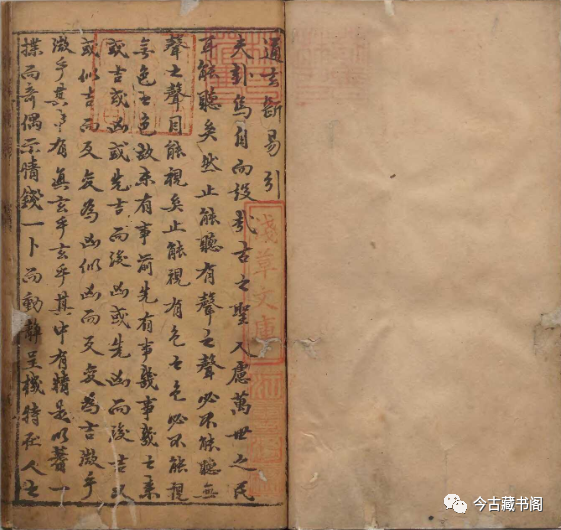 通玄斷易引
夫卦爲自而設哉古之聖人慮萬世之民
耳能聽矣然止能聽有聲之聲必不能聽無
聲之聲目能視矣止能視有色之色必不能視
無色之色故未有事前先有事幾事幾之來
或吉或凶或先吉而後凶或先凶而後吉又
或似吉而反變為凶似凶而反變為吉微乎
微乎其中有真玄乎玄乎其中有精是以蓍一
揲而奇偶示情錢一卜而動靜呈機特在人之
淺草文庫
今古藏书阁